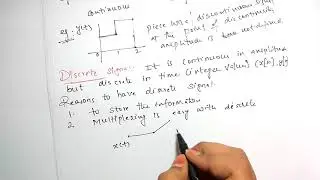 continuous
eg: y(t)
piece wise, discontinuous
at the point of discontinuity
amplitude is not defined
Discrete signal: It is continuous in amplitude
but discrete in time (integer value) (x[n], y[n]
Reasons to have discrete signal.
1. to store the information
2 Multiplexing is easy with discrete
x(t)